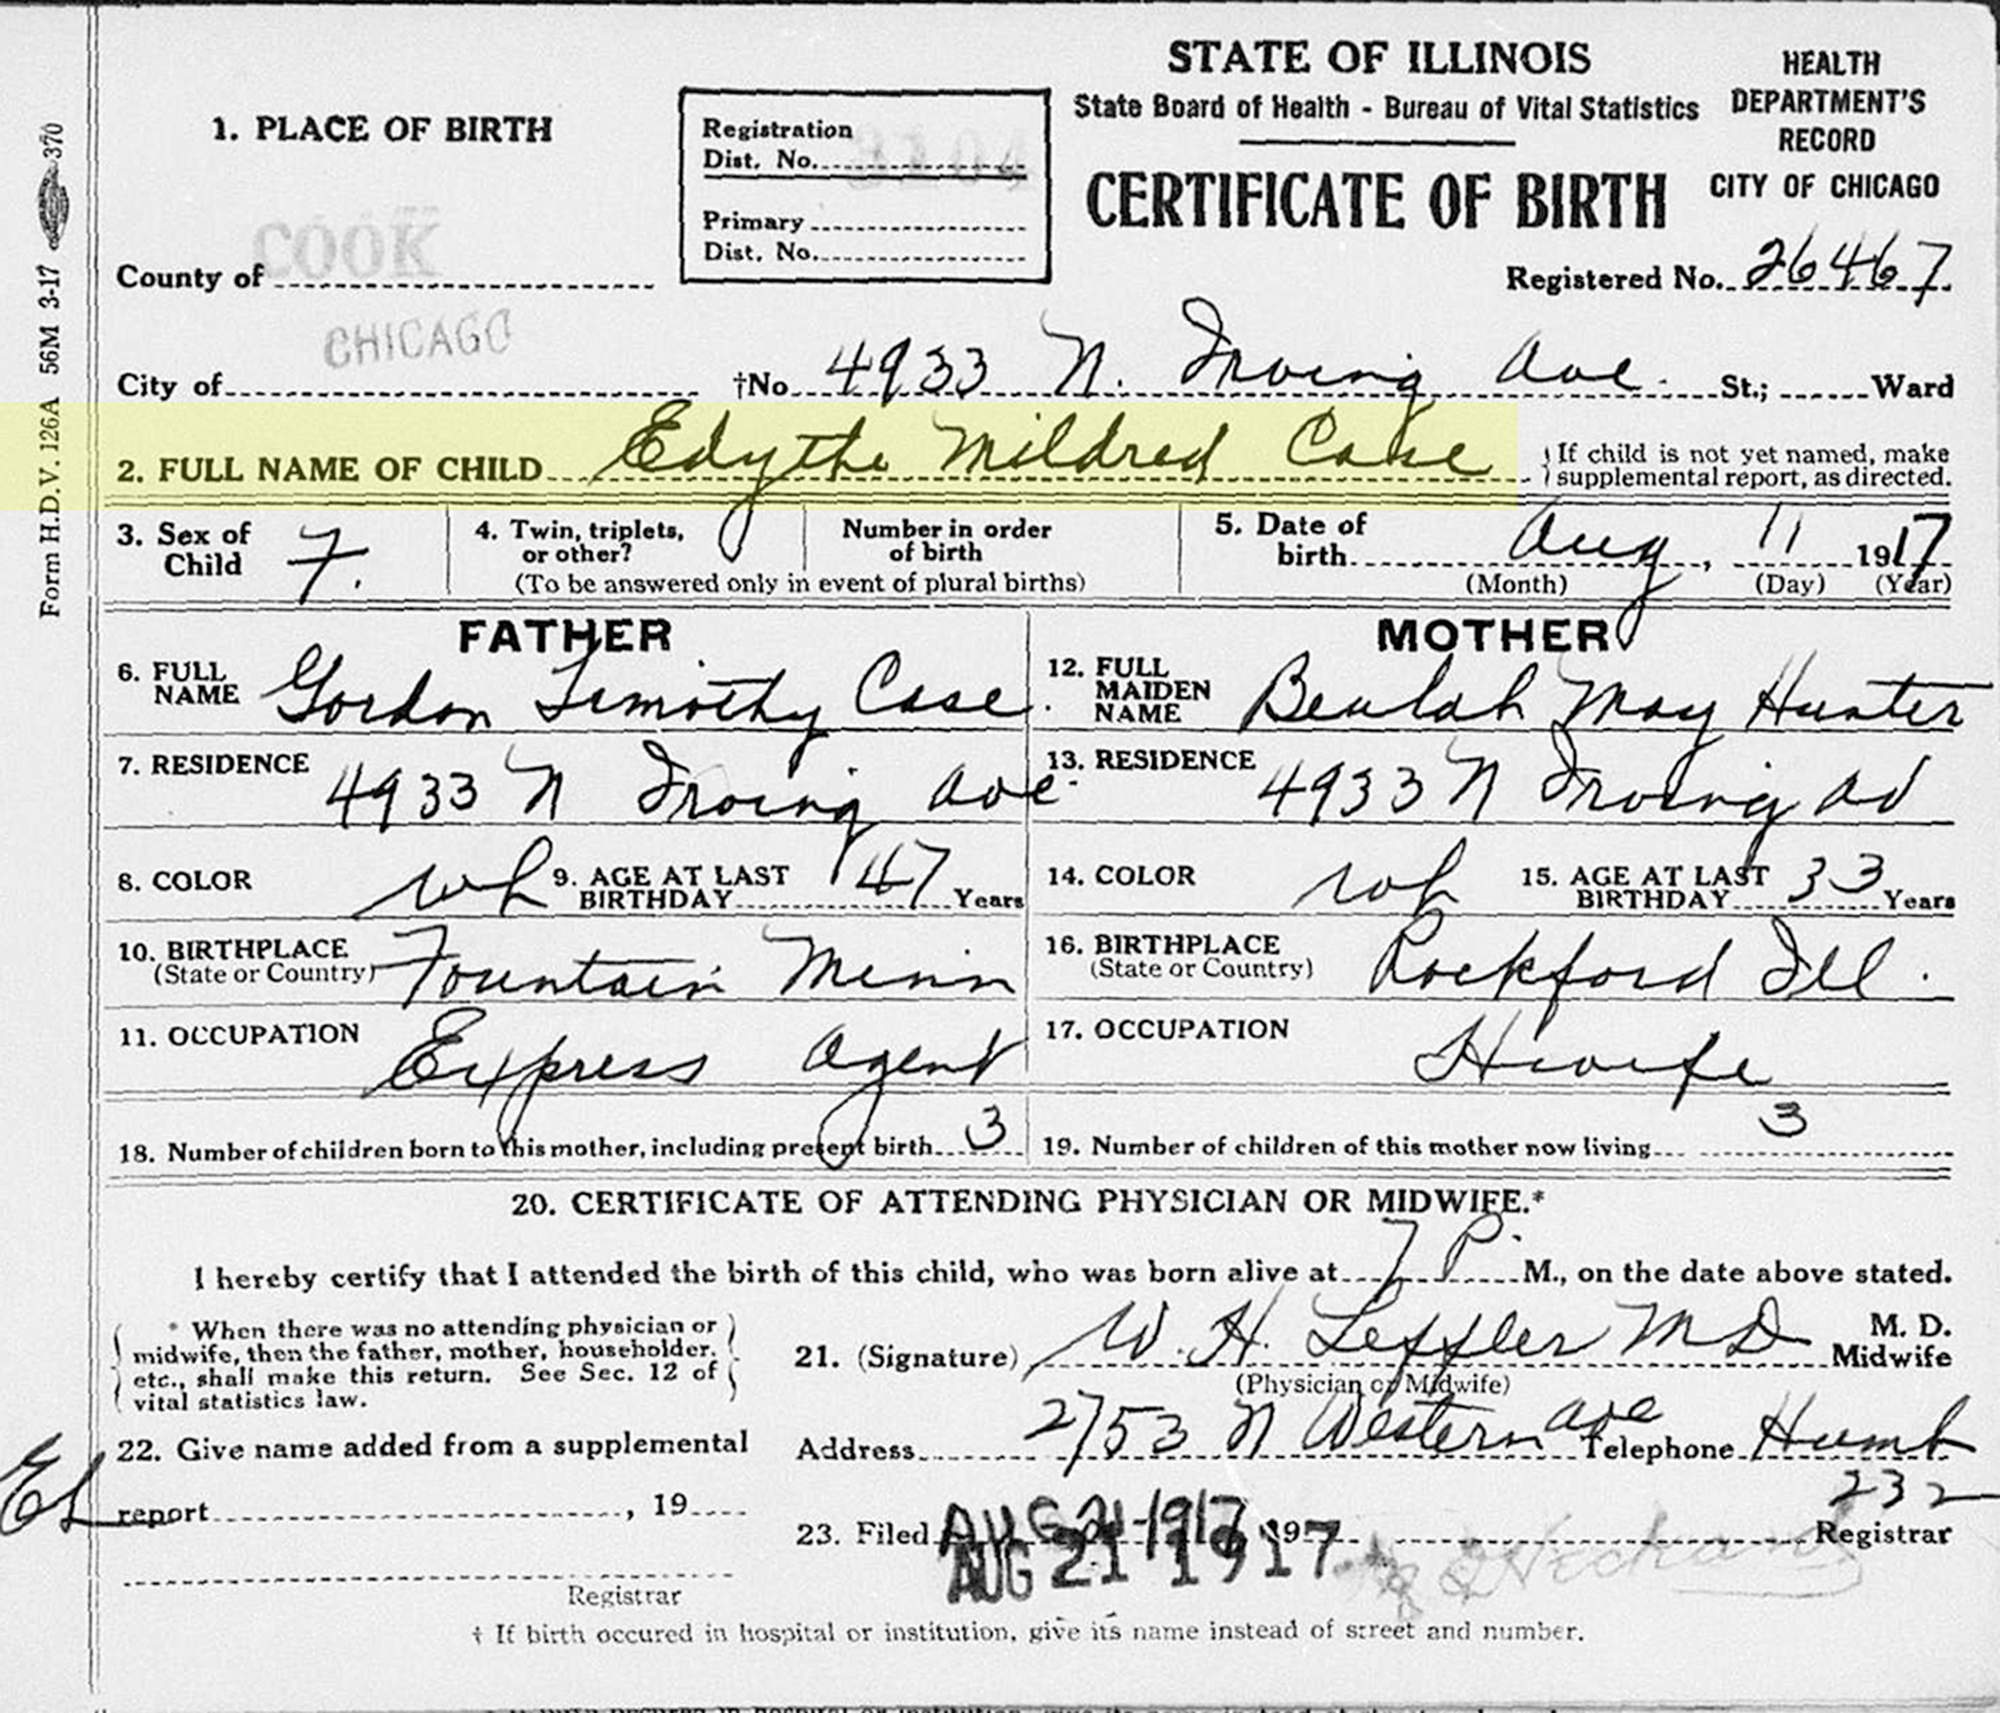 STATE OF ILLINOIS
State Board of Health - Bureau of Vital Statistics
CERTIFICATE OF BIRTH
HEALTH
DEPARTMENT'S
RECORD
CITY OF CHICAGO
Registered No. 26467
Form H.D.V. 126A 56M 3-17 370
1. PLACE OF BIRTH
Registration
Dist. No. 3104
Primary
Dist. No.
County of COOK
City of CHICAGO †No. 4933 N. Irving Ave. St.; Ward
2. FULL NAME OF CHILD Edythe Mildred Case
If child is not yet named, make
supplemental report, as directed.
3. Sex of
Child F.
4. Twin, triplets,
or other?
Number in order
of birth
(To be answered only in event of plural births)
5. Date of
birth Aug, 11 1917
(Month) (Day) (Year)
FATHER
6. FULL
NAME Gordon Timothy Case.
7. RESIDENCE 4933 N Irving Ave.
8. COLOR wh
9. AGE AT LAST
BIRTHDAY 47 Years
10. BIRTHPLACE
(State or Country) Fountain Minn
11. OCCUPATION Express Agent
MOTHER
12. FULL
MAIDEN
NAME Beulah May Hunter
13. RESIDENCE 4933 N Irving Av
14. COLOR wh
15. AGE AT LAST
BIRTHDAY 33 Years
16. BIRTHPLACE
(State or Country) Rockford Ill.
17. OCCUPATION Hwife
18. Number of children born to this mother, including present birth 3
19. Number of children of this mother now living 3
20. CERTIFICATE OF ATTENDING PHYSICIAN OR MIDWIFE.*
I hereby certify that I attended the birth of this child, who was born alive at 7 P. M., on the date above stated.
* When there was no attending physician or
midwife, then the father, mother, householder.
etc., shall make this return. See Sec. 12 of
vital statistics law.
21. (Signature) W. H. Leffler MD M. D.
Midwife
(Physician or Midwife)
Address 2753 N Western Ave Telephone Humb
232
22. Give name added from a supplemental
report , 19
Registrar
23. Filed AUG 21 1917 19 Registrar
AUG 21 1917
† If birth occured in hospital or institution, give its name instead of street and number.